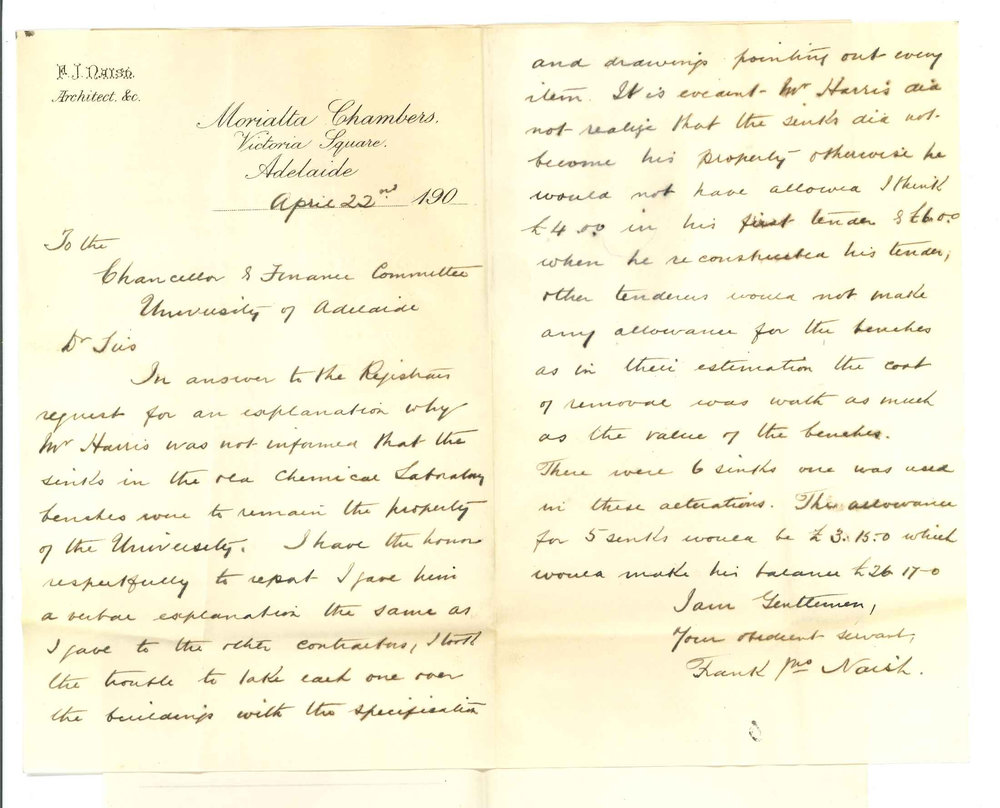 F. J. Naish.
Architect, &c.
Morialta Chambers,
Victoria Square,
Adelaide
April 22nd 190
To the
Chancellor & Finance Committee
University of Adelaide
Dr Sirs
In answer to the Registrars
request for an explanation why
Mr Harris was not informed that the
sinks in the old Chemical Laboratory
benches were to remain the property
of the University. I have the honor
respectfully to report I gave him
a verbal explanation the same as
I gave to the other contractors, I took
the trouble to take each one over
the buildings with the specification
and drawings pointing out every
item. It is evident Mr Harris did
not realize that the sinks did not
become his property otherwise he
would not have allowed I think
£4.00 in his first tender & £6.0.0
when he reconstructed his tender,
other tenderers would not make
any allowance for the benches
as in their estimation the cost
of removal was worth as much
as the value of the benches.
There were 6 sinks one was used
in these alterations. The allowance
for 5 sinks would be £3.15.0 which
would make his balance £26 17-0
I am Gentlemen,
Your obedient servant,
Frank Jno Naish.